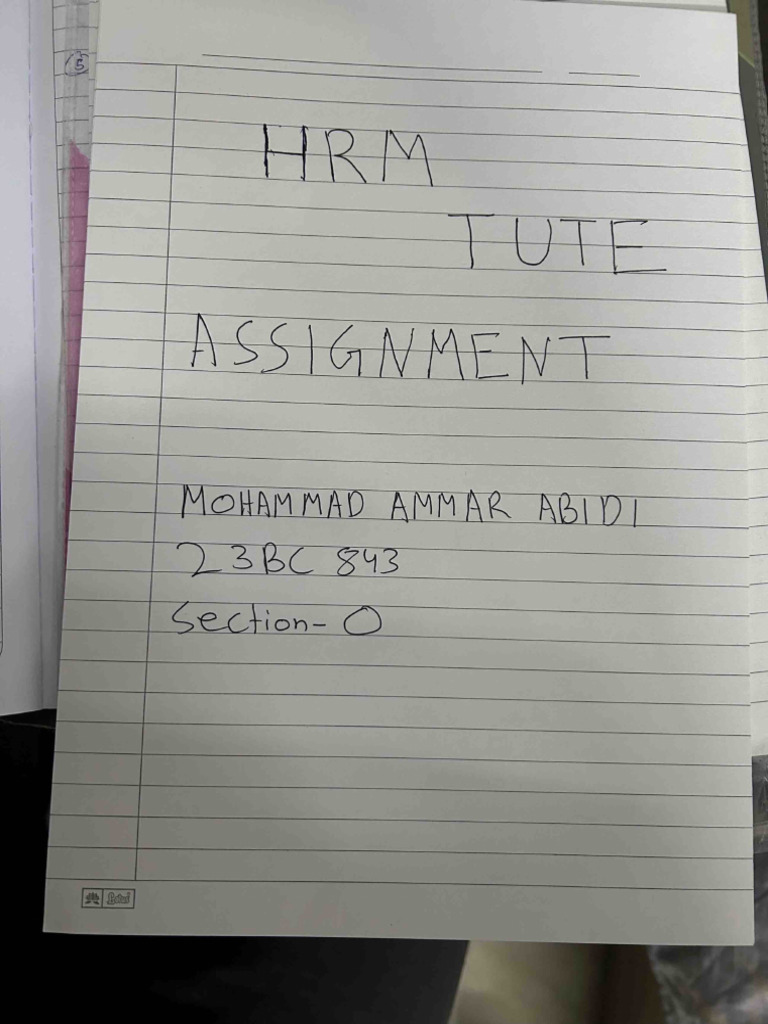 5
HRM
TUTE
ASSIGNMENT
MOHAMMAD AMMAR ABIDI
23BC 843
Section- O